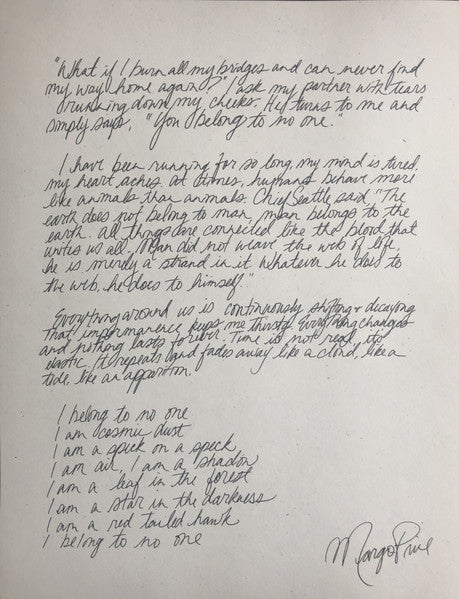 "What if I burn all my bridges and can never find
my way home again?" I ask my partner with tears
drumming down my cheeks. He turns to me and
simply says, "You belong to no one."
I have been running for so long, my mind is tired.
my heart aches. At times, humans behave more
like animals than animals. Chief Seattle said, "The
earth does not belong to man, man belongs to the
earth. All things are connected like the blood that
unites us all. Man did not weave the web of life,
he is merely a strand in it. Whatever he does to
the web, he does to himself."
Everything around us is continuously shifting + decaying
That impermanence keeps me thirsty. Everything changes
and nothing lasts forever. Time is not real, its
elastic. It repeats and fades away like a cloud, like a
tide, like an apparition.
I belong to no one
I am cosmic dust
I am a speck on a speck
I am air, I am a shadow
I am a leaf in the forest
I am a star in the darkness
I am a red tailed hawk
I belong to no one
Margo Price